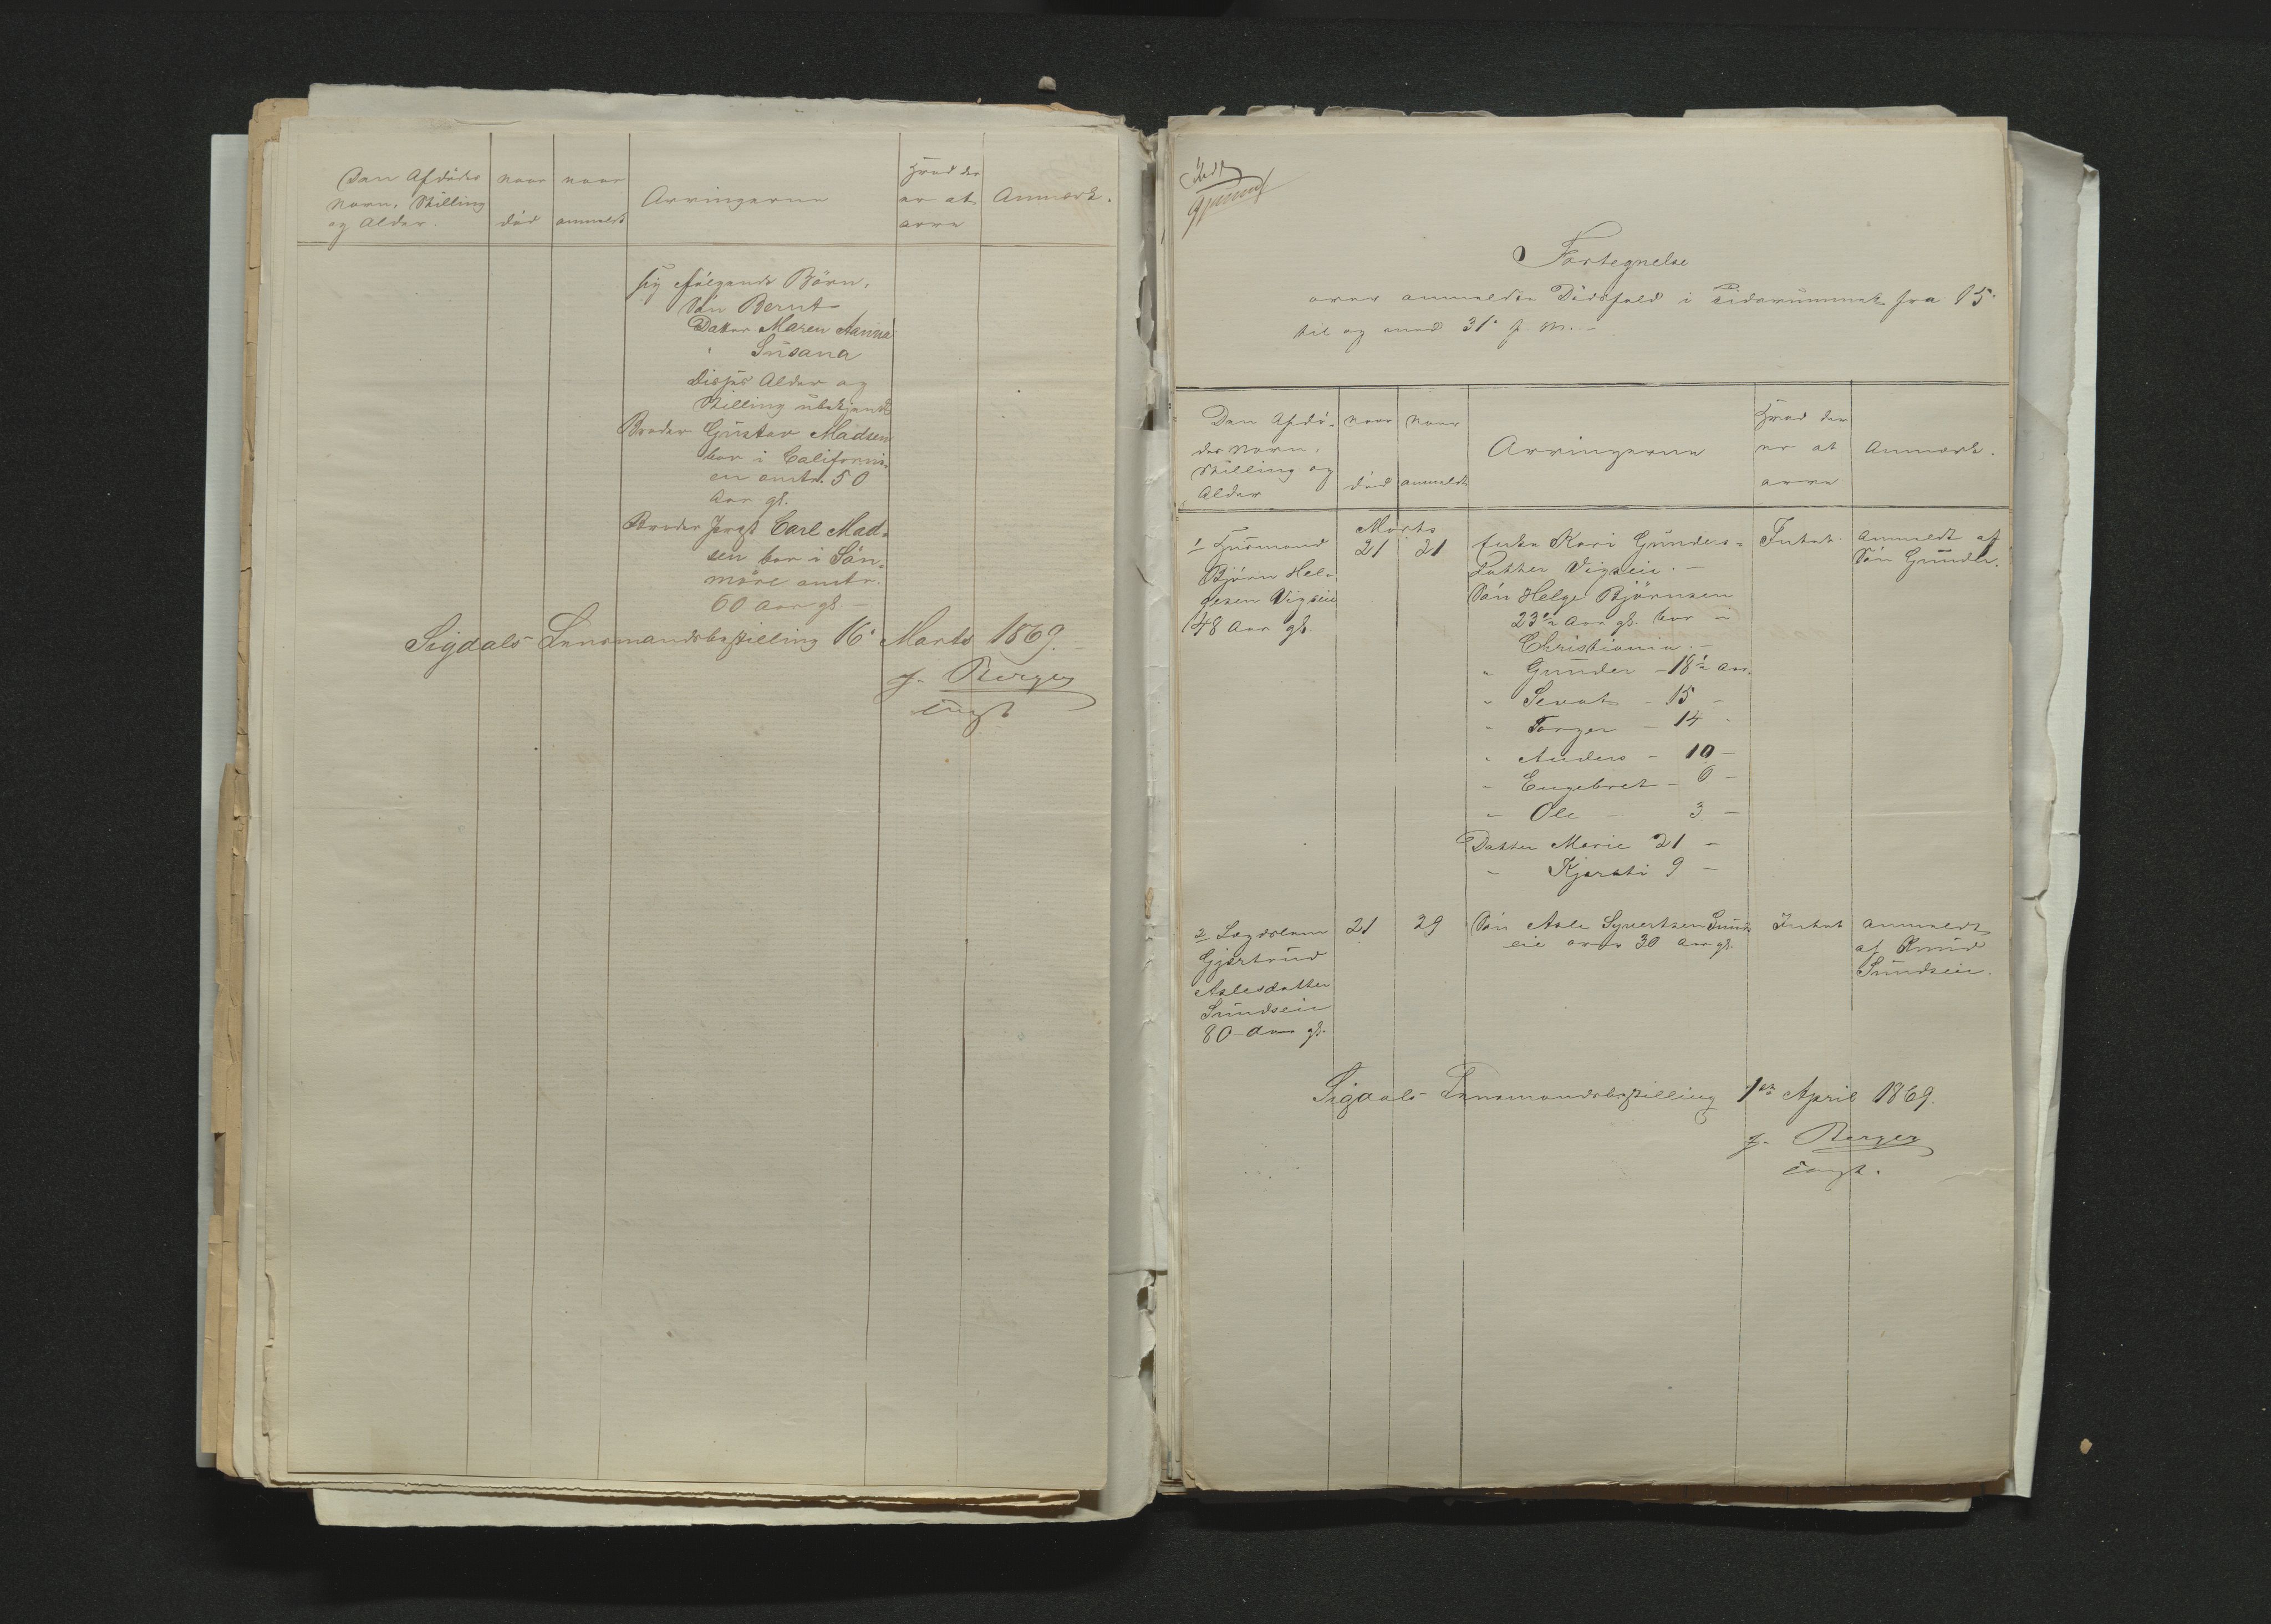 Den Afdødes
Navn, Stilling
og Alder.
naar
død
naar
anmeldt
Arvingerne
Hvad der
er at
arve
Anmærk.
sig følgende Börn,
Sön Bernt
Datter Maren Hanna
" Susana
disses Alder og
Stilling ubekjendt
Broder Gustav Madsen
bor i Californi-
en omtr. 50
Aar gl.
Broder Carl Mad-
sen bor i Sön-
möre omtr.
60 Aar gl –
Sigdals Lensmandsbestilling 16' Marts 1869.
J. Berger
Fortegnelse
over anmeldte Dödsfald i Tidsrummet fra 15'
til og med 31' f. M. –
Den Afdö-
des Navn,
Stilling og
Alder
naar
død
naar
anmeldt
Arvingerne
Hvad der
er at
arve
Anmærk.
Marts
1 Husmand
Björn Hel-
gesen Vigseie
48 Aar gl.
21
21
Enke Kari Gunders-
datter Vigseie. –
Sön Helge Björnsen
23 1/2 Aar gl. bor i
Christiania. –
" Gunder – 18 1/2 Aar.
" Sevat – 15 –
" Torger – 14 "
" Anders – 10 –
" Engebret – 6 –
" Ole – 3 –
Datter Marie 21 –
" Kjersti 9 –
Intet.
Anmeldt af
Sön Gunder.
2 Lægdslem
Gjertrud
Aslesdatter
Sundseie
80 – Aar gl.
21
29
Sön Asle Syvertsen Sunds-
eie over 30 Aar gl.
Intet
Anmeldt
af Knud
Sundseie.
Sigdals Lensmandsbestilling 1ste April 1869.
J. Berger